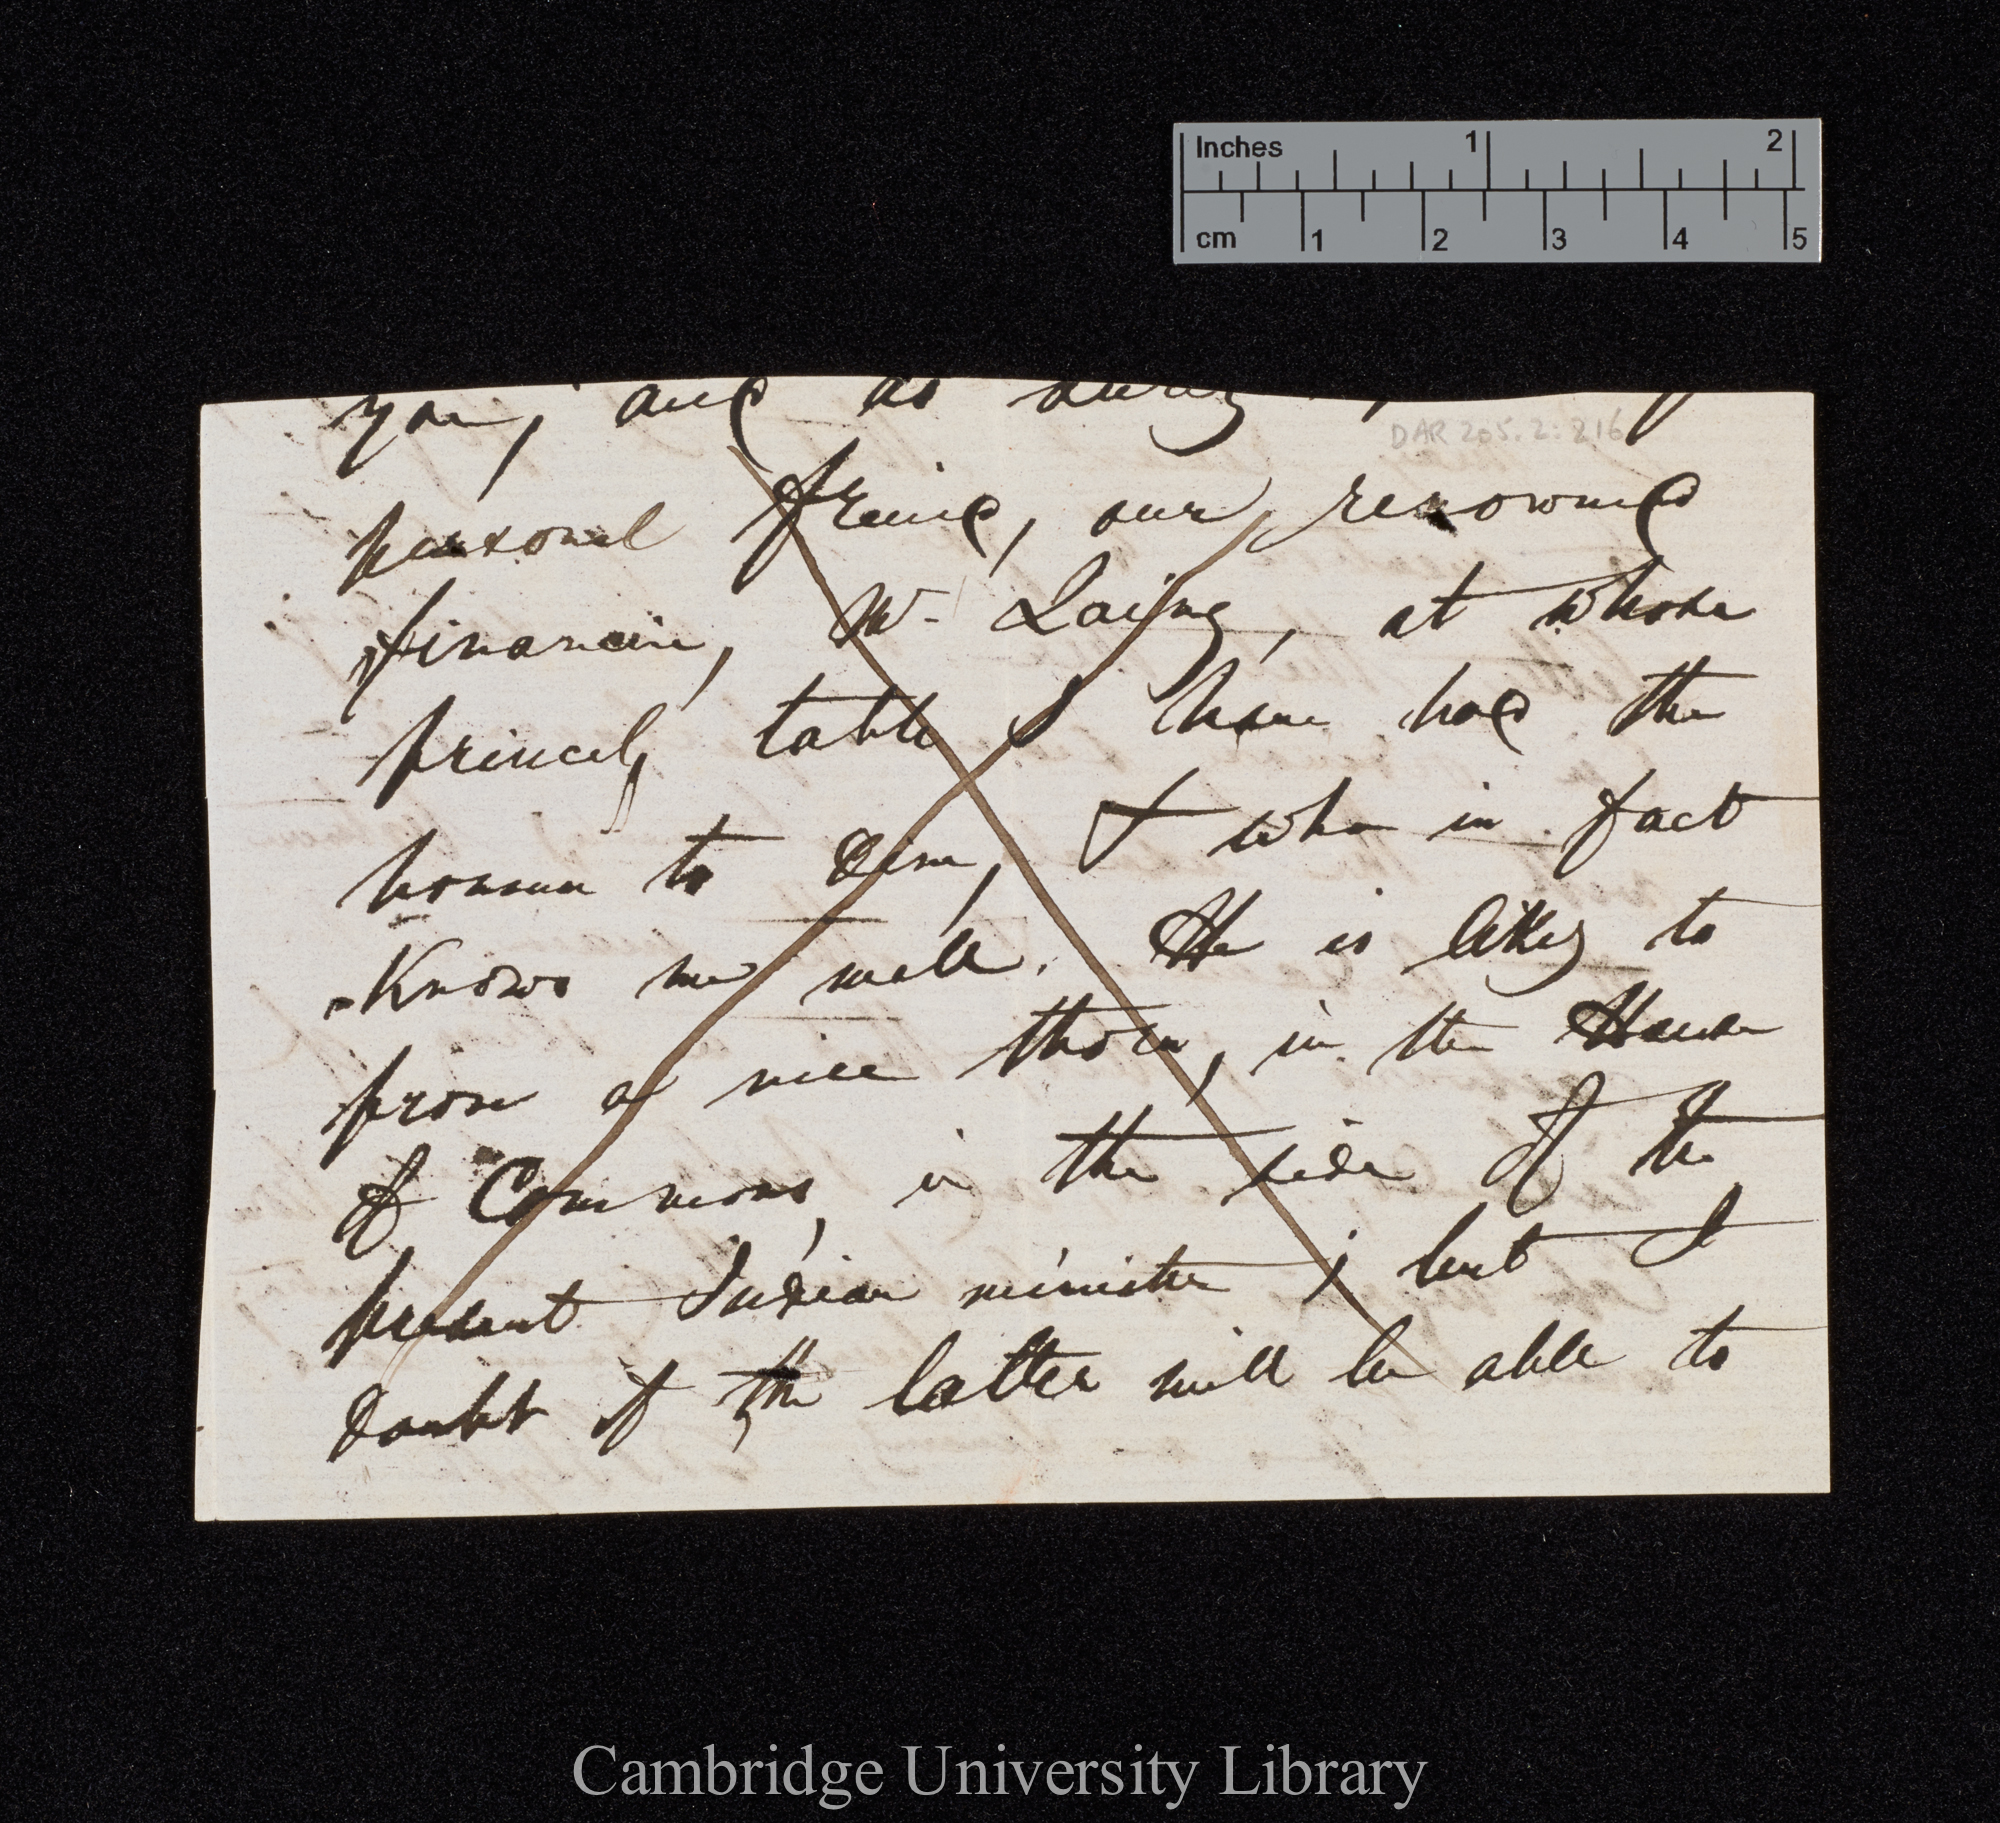 Inches 1 2
cm 1 2 3 4 5
you, and as
DAR 205.2: 216
personal friend, our renowned
financier, Mr. Laing, at whose
princely table I have had the
honour to dine, & who in fact
Knows me well. He is likely to
prove a nice thorn, in the House
of Commons, in the side of the
present Indian minister; but I
doubt if the latter will be able to
Cambridge University Library